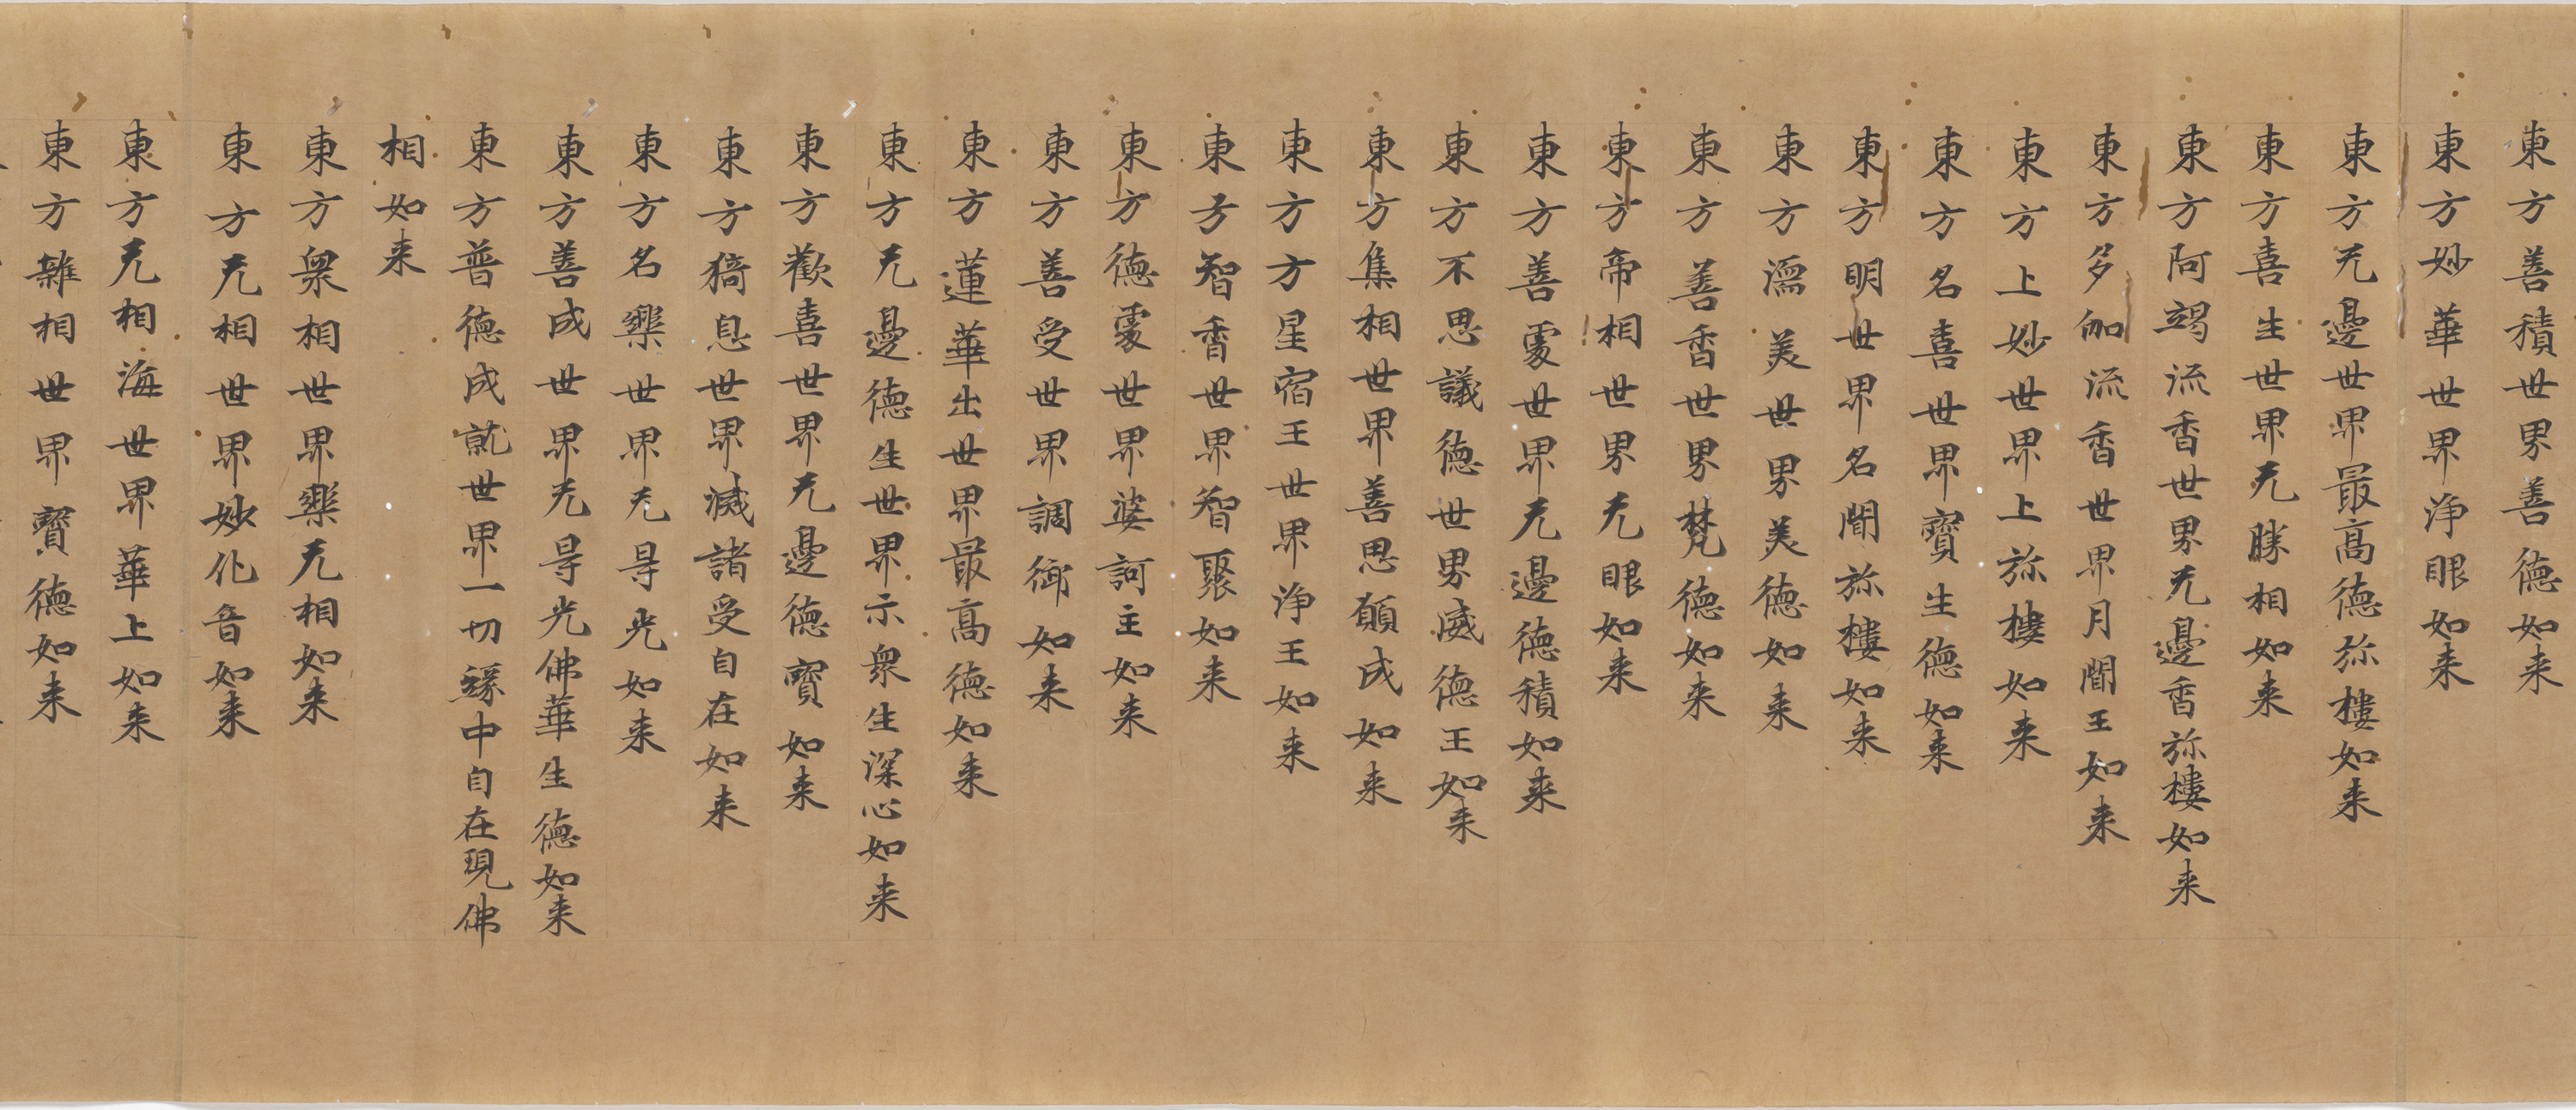 東方善積世界善德如来
東方妙華世界浄眼如来
東方无邊世界最髙德弥樓如来
東方喜生世界无勝相如来
東方阿竭流香世界无邊香弥樓如来
東方多伽流香世界月聞王如来
東方上妙世界上弥樓如来
東方名喜世界寶生德如来
東方明世界名聞弥樓如来
東方濡美世界美德如来
東方善香世界梵德如来
東方帝相世界无眼如来
東方善處世界无邊德積如来
東方不思議德世界威德王如来
東方集相世界善思願成如来
東方方星宿王世界浄王如来
東方智香世界智聚如来
東方德處世界婆訶主如来
東方善受世界調御如来
東方蓮華出世界最髙德如来
東方无邊德生世界示衆生深心如来
東方歡喜世界无邊德寶如来
東方猗息世界滅諸受自在如来
東方名樂世界无㝵光如来
東方善成世界无㝵光佛華生德如来
東方普德成就世界一切緣中自在現佛
相如来
東方衆相世界樂无相如来
東方无相世界妙化音如来
東方无相海世界華上如来
東方雜相世界寶德如来